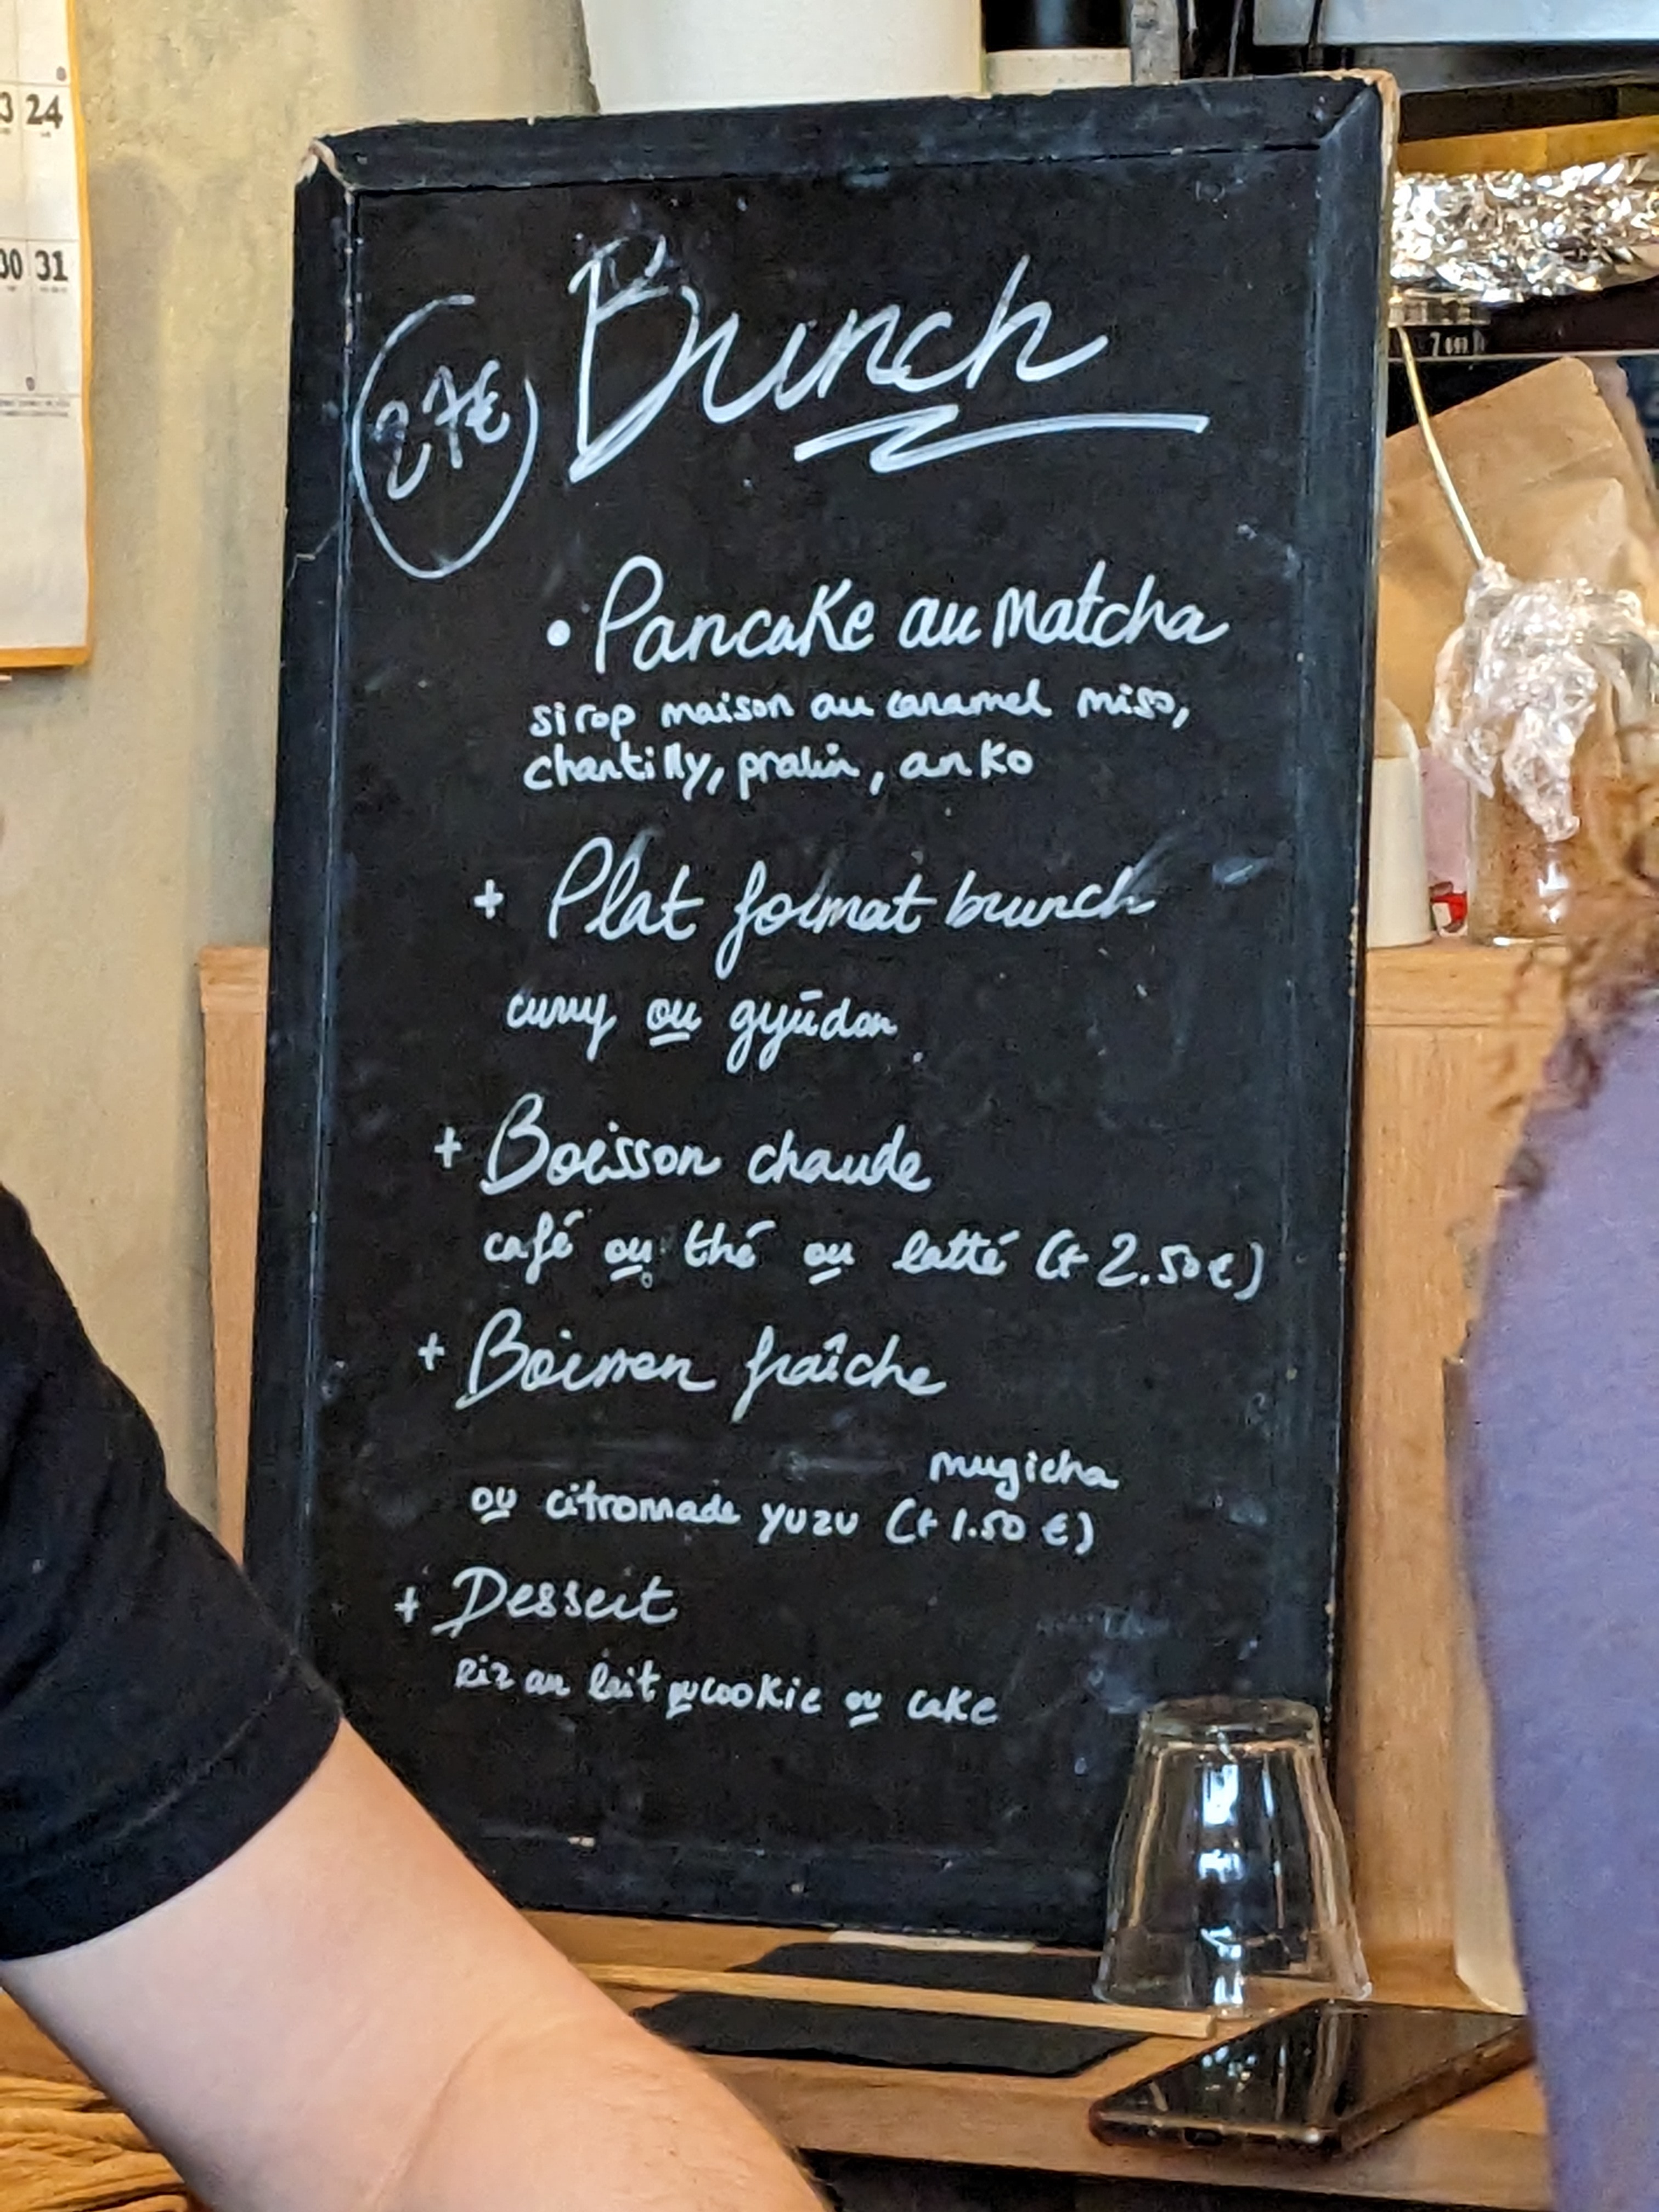 3 24
30 31
Brunch
27€
• Pancake au Matcha
sirop maison au caramel miso,
chantilly, pralin, anko
+ Plat format brunch
curry ou gyūdon
+ Boisson chaude
café ou thé ou latté (+ 2.50€)
+ Boisson fraîche
mugicha
ou citronnade yuzu (+ 1.50 €)
+ Dessert
riz au lait ou cookie ou cake